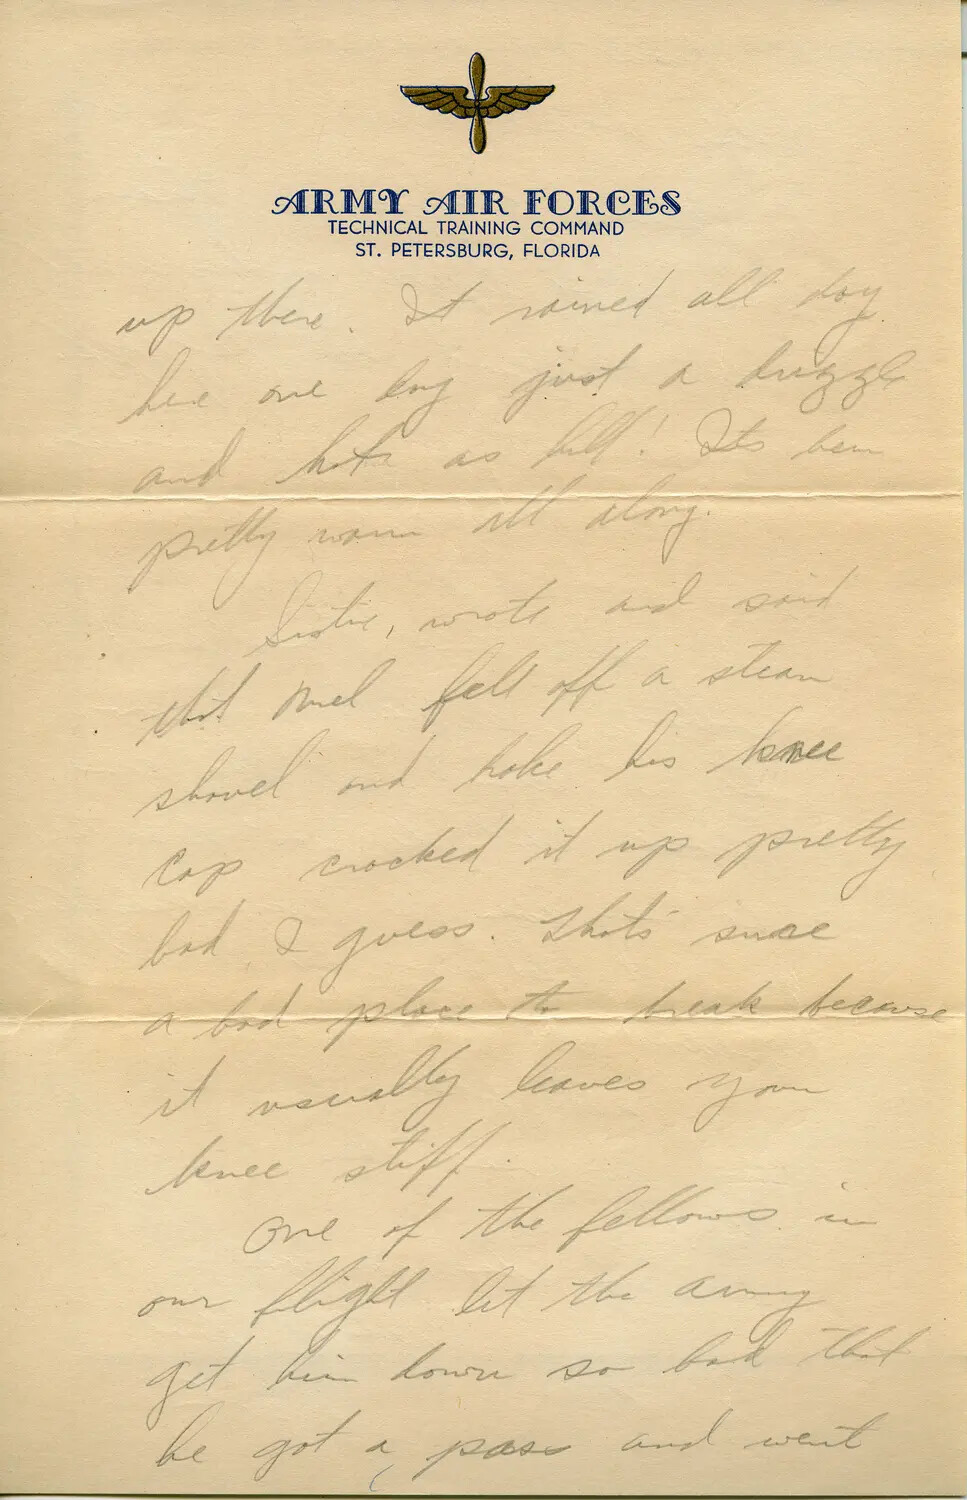 ARMY AIR FORCES
TECHNICAL TRAINING COMMAND
ST. PETERSBURG, FLORIDA
up there. It rained all day
here one day just a drizzle
and hot as hell! Its been
pretty warm all along.
Sistie, wrote and said
that Mel fell off a steam
shovel and broke his knee
cap cracked it up pretty
bad I guess. Thats sure
a bad place to break because
it usually leaves your
knee stiff.
One of the fellows in
our flight let the army
get him down so bad that
he got a pass and went